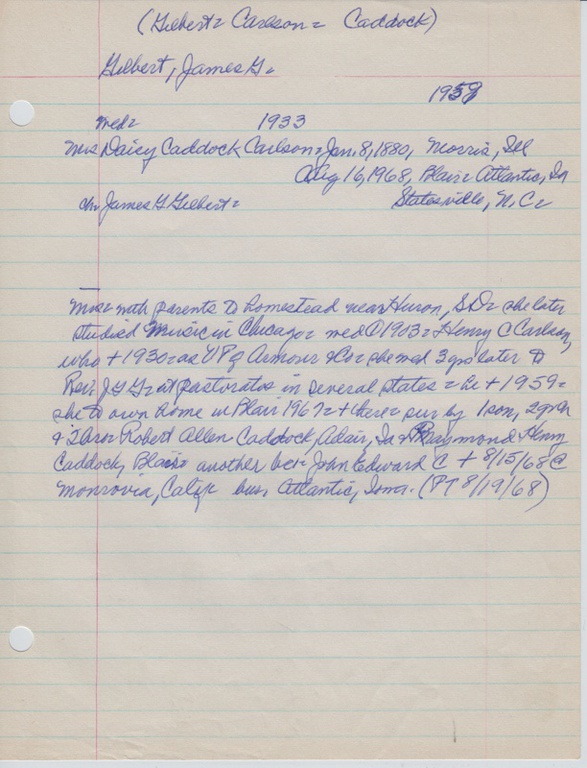 (Gilbert= Carlson= Caddock)
Gilbert, James G.
1959
med= 1933
Mrs Daicy Caddock Carlson= Jan. 8, 1880, Morris, Ill
Aug 16, 1968, Blair= Atlantic, Ia
ch= James G Gilbert= Statesville, N.C=
with parents to homestead near Huron, S.D= she later
studied music in Chicago= med 1903= Henry C Carlson,
who + 1930= as VP of Armour & Co= she med 3 yrs later to
Rev. J G G= at pastorates in several states= he + 1959=
she to own home in Blair 1967= + there= sur by 1 son, 2 gch
& 2 bro= Robert Allen Caddock, Adair, Ia & Raymond Henry
Caddock, Blair= another bro= John Edward C + 8/15/68 @
Monrovia, Calif= bur, Atlantic, Iowa. (PT 8/19/68)